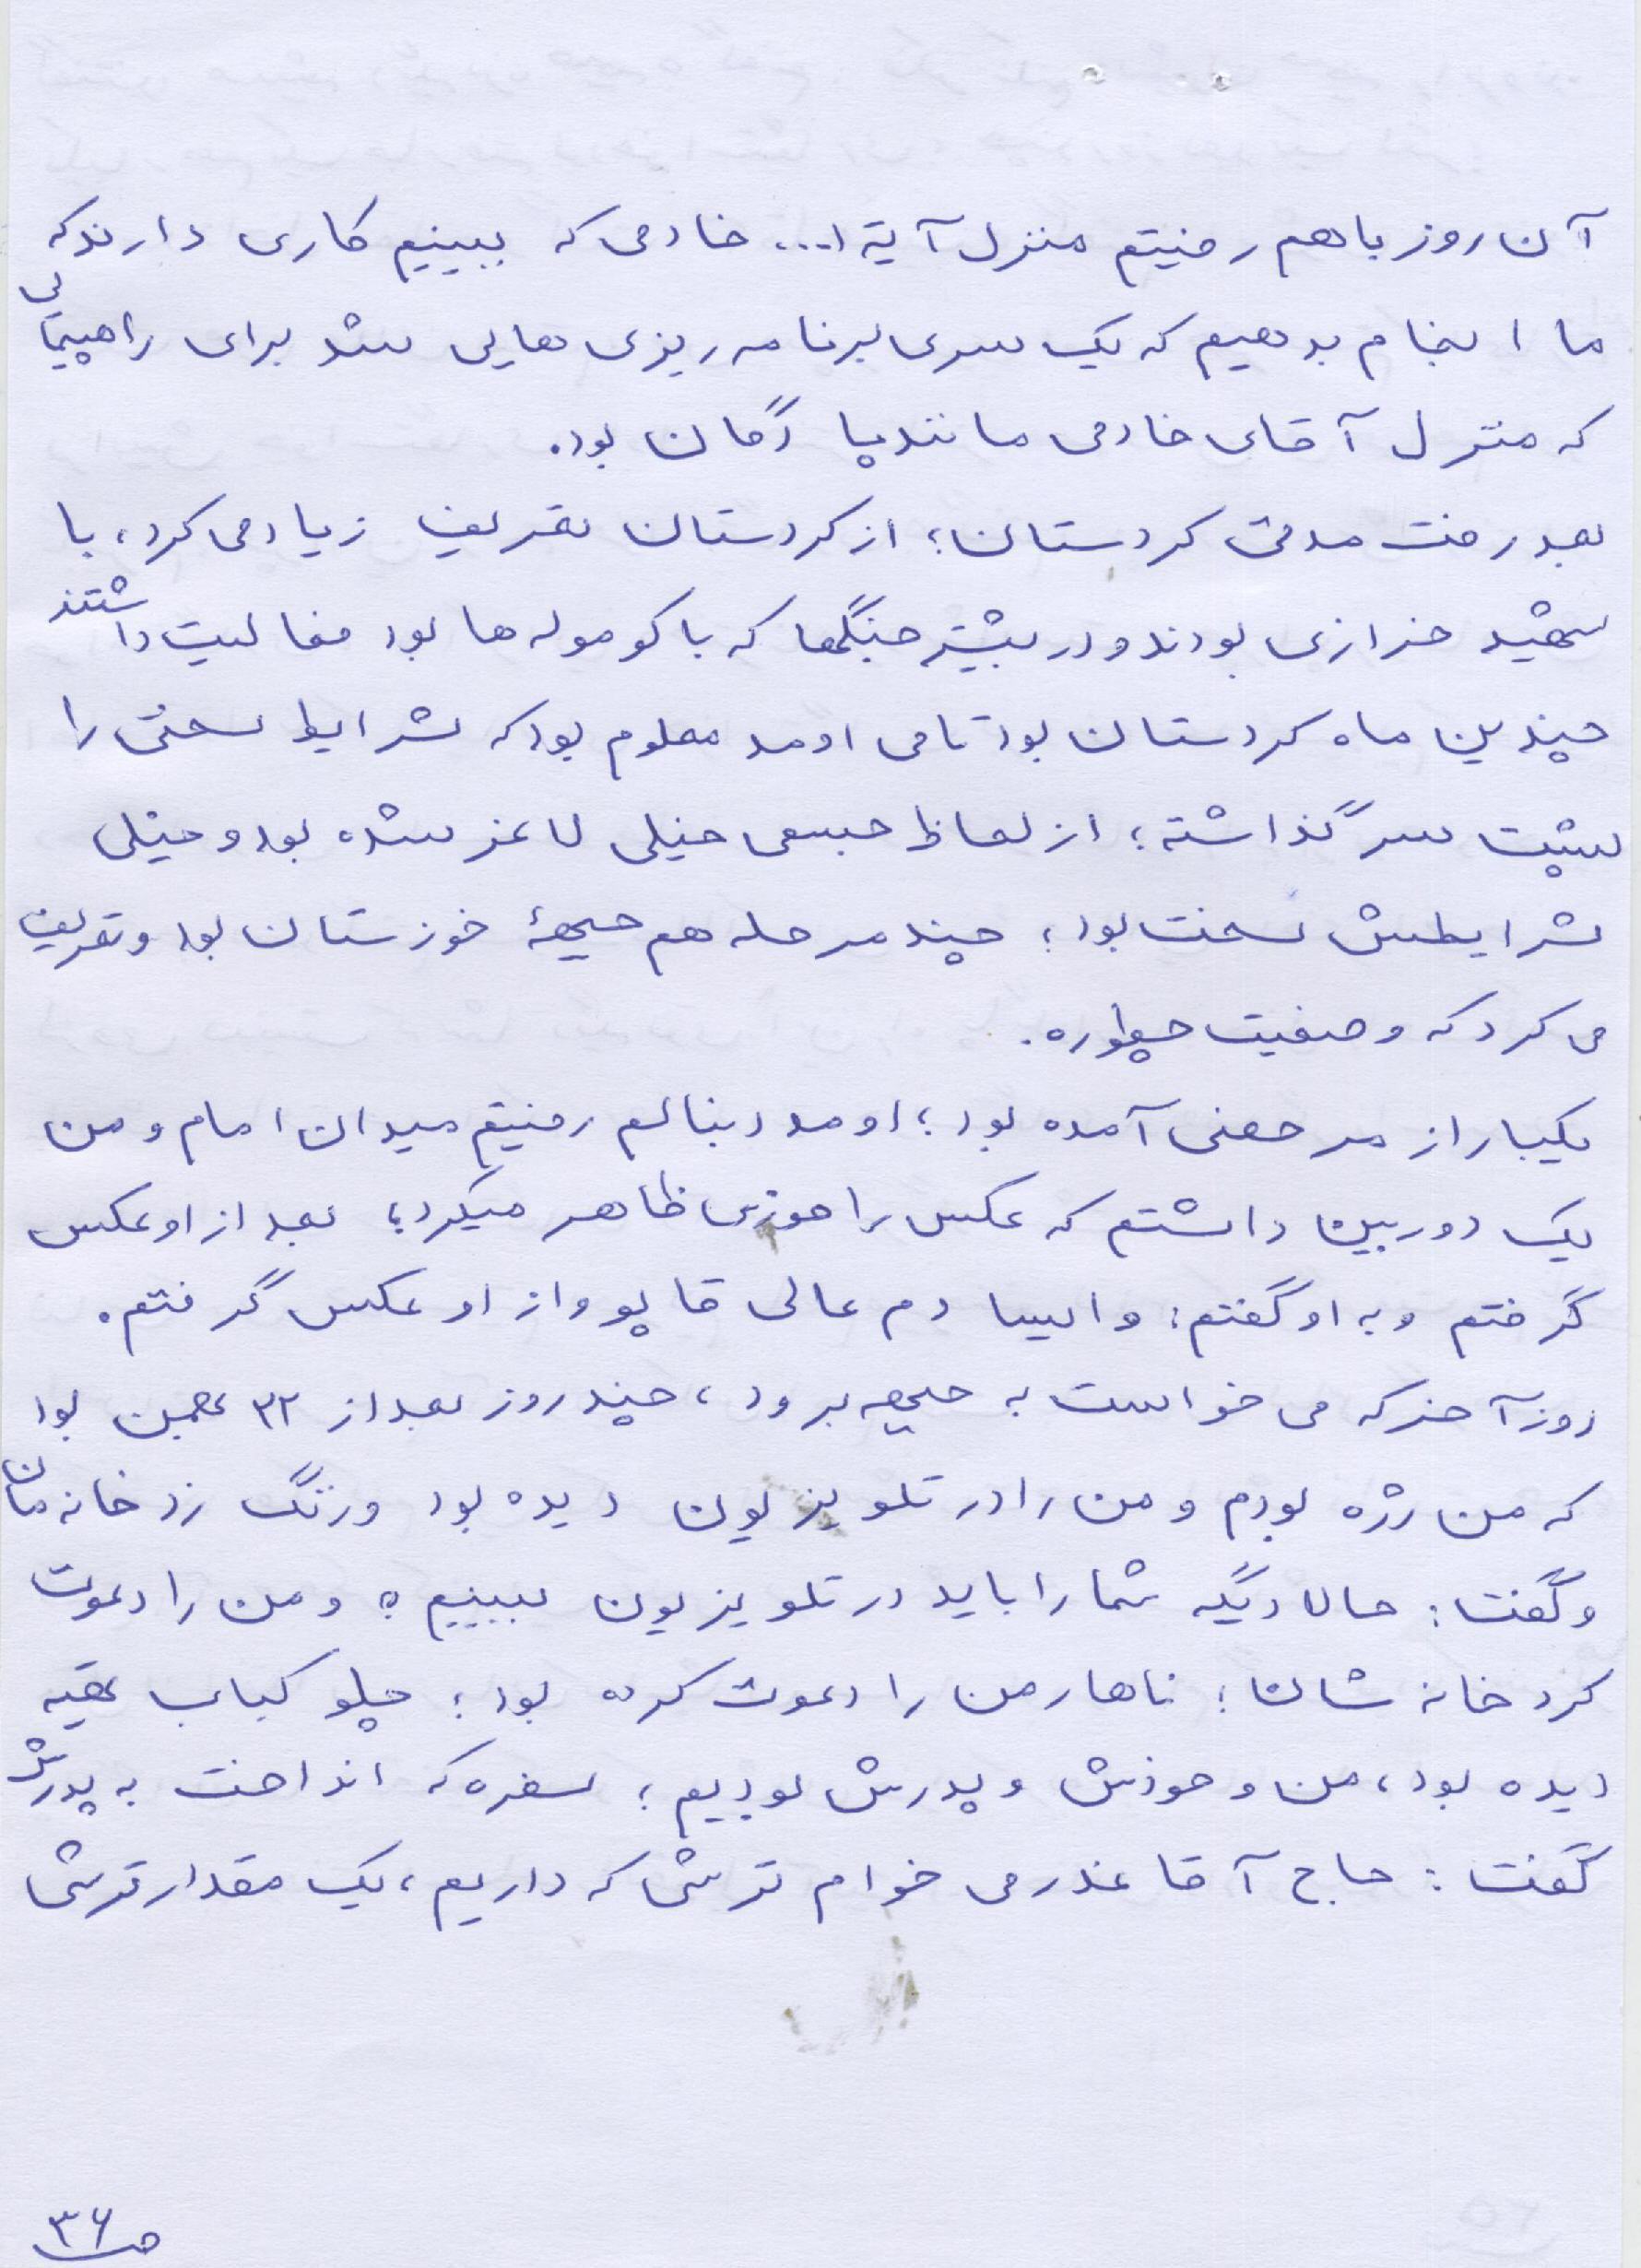 آن روز باهم رفتیم منزل آیة ا... خادمی که ببینیم کاری دارند که
ما انجام بدهیم که یک سری برنامه ریزی هایی شد برای راهپیمائی
که منزل آقای خادمی مانند پادگان بود.
بعد رفت مدتی کردستان؛ از کردستان تعریف زیاد می کرد، با
شهید خرازی بودند و در بیشتر جنگها که با کوموله ها بود فعالیت داشتند
چندین ماه کردستان بود تا می اومد معلوم بود که شرایط سختی را
پشت سر گذاشته؛ از لحاظ جسمی خیلی لاغر شده بود و خیلی
شرایطش سخت بود؛ چند مرحله هم جبههٔ خوزستان بود و تعریف
می کرد که وضعیت چطوره.
یکبار از مرخصی آمده بود؛ اومد دنبالم رفتیم میدان امام و من
یک دوربین داشتم که عکس را فوری ظاهر میکرد؛ بعد از او عکس
گرفتم و به او گفتم: وایسا دم عالی قاپو و از او عکس گرفتم.
روز آخر که می خواست به جبهه برود، چند روز بعد از ۲۲ بهمن بود
که من رژه بودم و من را در تلویزیون دیده بود و زنگ زد خانه مان
و گفت: حالا دیگه شما را باید در تلویزیون ببینیم؟ و من را دعوت
کرد خانه شان؛ ناهار من را دعوت کرده بود؛ چلو کباب تهیه
دیده بود، من و خودش و پدرش بودیم؛ سفره که انداخت به پدرش
گفت: حاج آقا عذر می خوام ترشی که داریم، یک مقدار ترشی
ص ۳۶